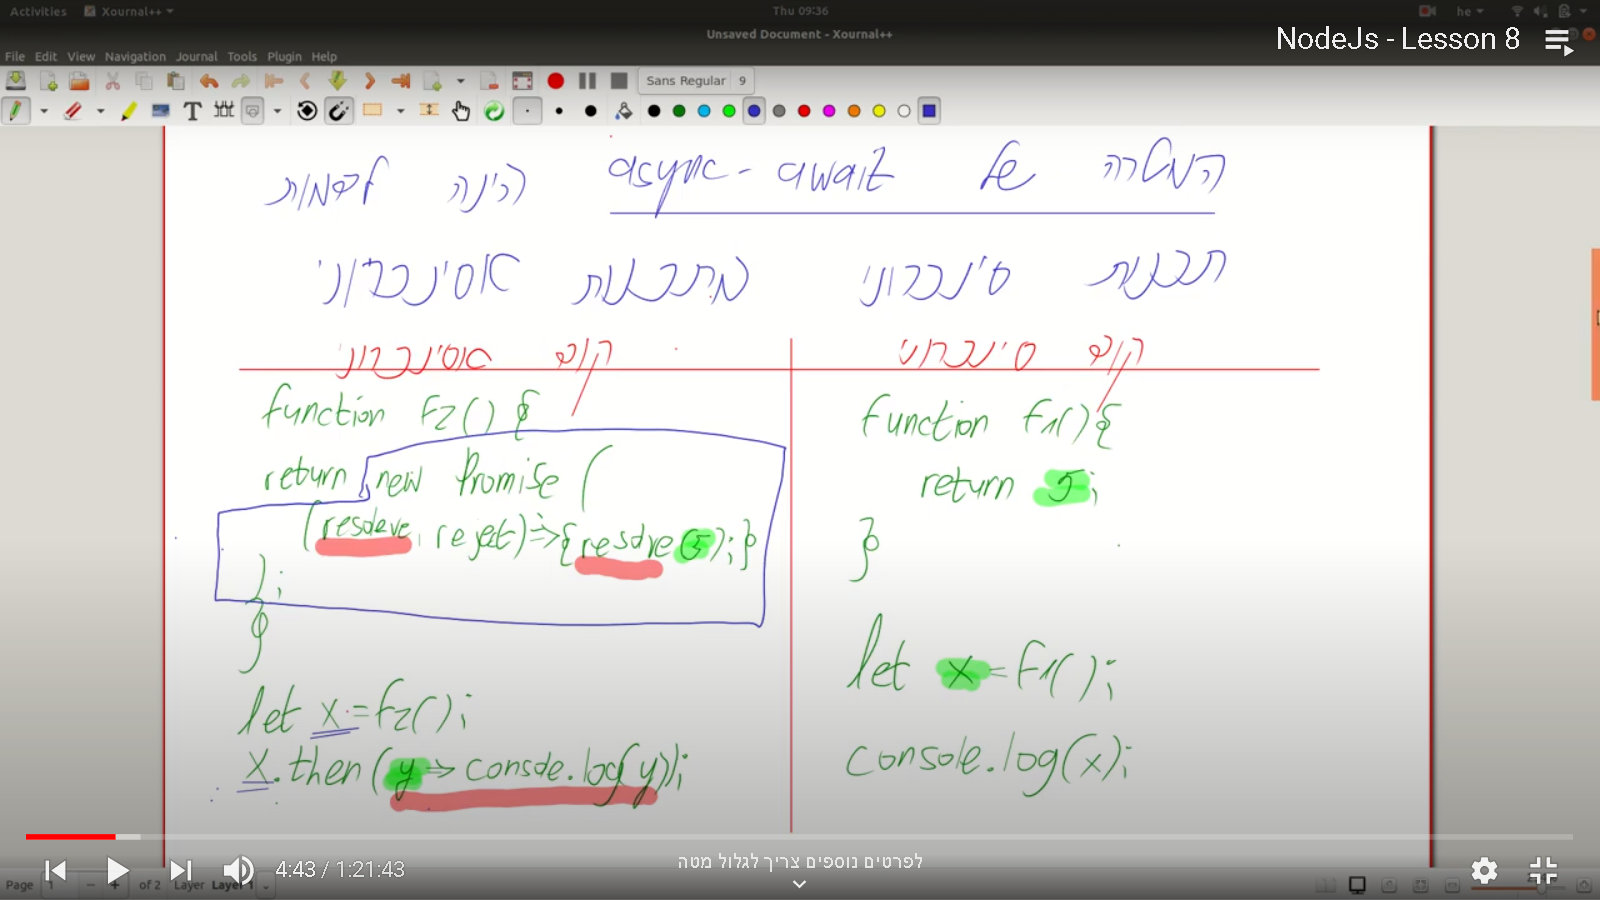 Activities Xournal++ Thu 09:36 he
Unsaved Document - Xournal++
NodeJs - Lesson 8
File Edit View Navigation Journal Tools Plugin Help
Sans Regular 9
המטרה של async-await הינה לדמות
תכנות סינכרוני מתכנות אסינכרוני
קוד סינכרוני
function f1(){
return 5;
}
let x = f1();
console.log(x);
קוד אסינכרוני
function f2() {
return new Promise (
(resolve, reject)=>{resolve(5);}
);
}
let x = f2();
x.then(y => console.log(y));
4:43 / 1:21:43
לפרטים נוספים צריך לגלול מטה
Page 1 of 2 Layer Layer 1